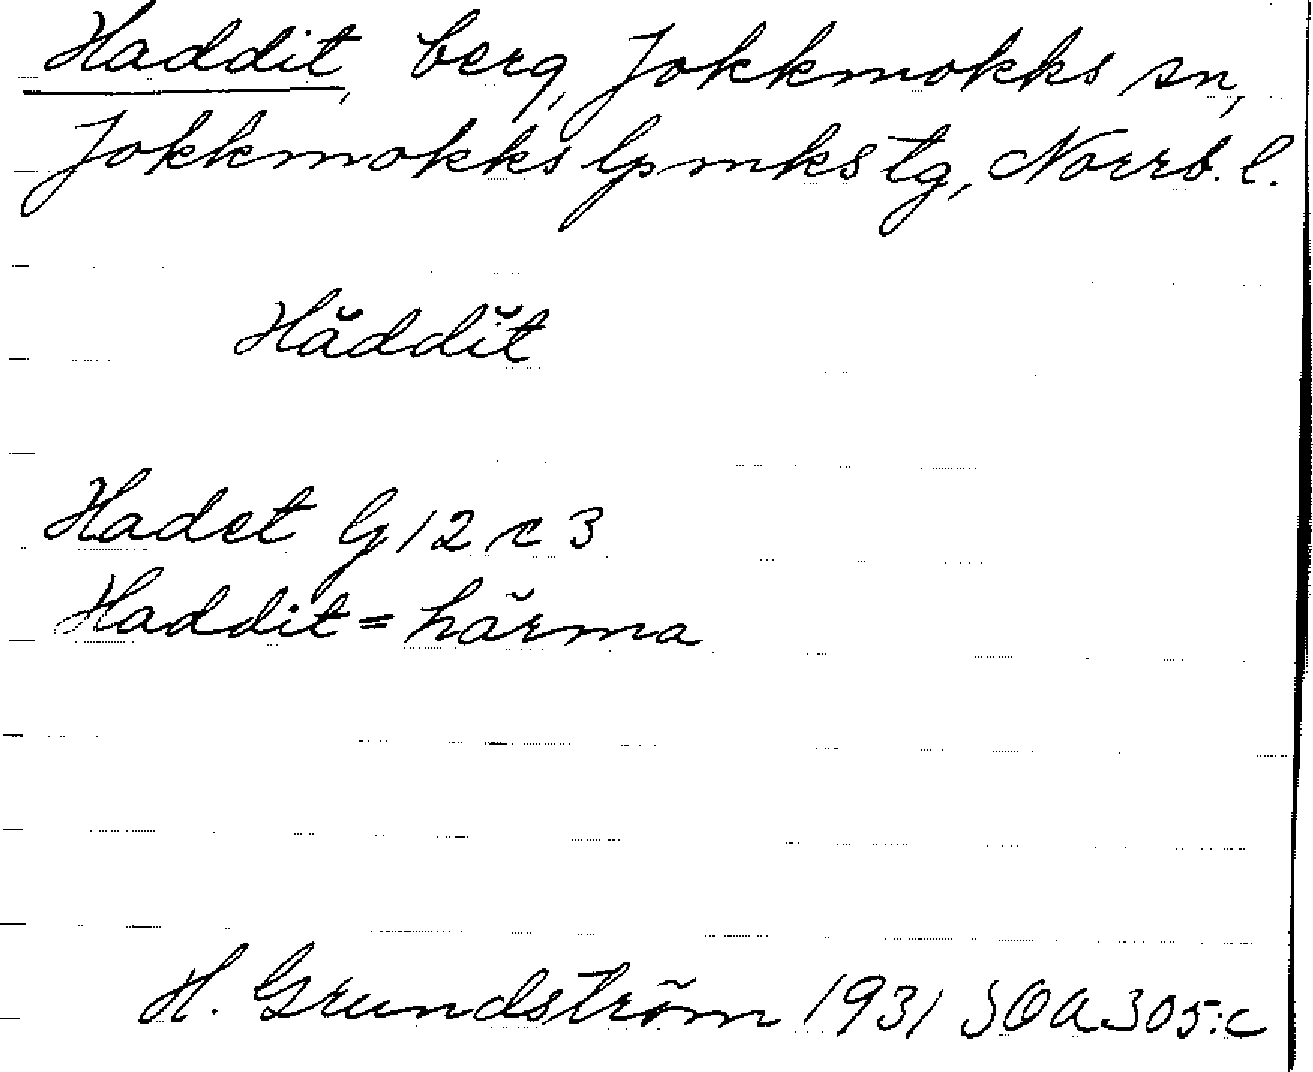 Haddit, berg, Jokkmokks sn,
Jokkmokks lpmks tg, Norrb. l.
Hăddĭt
Hadet G 12 c 3
Haddit = härma
H. Grundström 1931 SOA 305:c